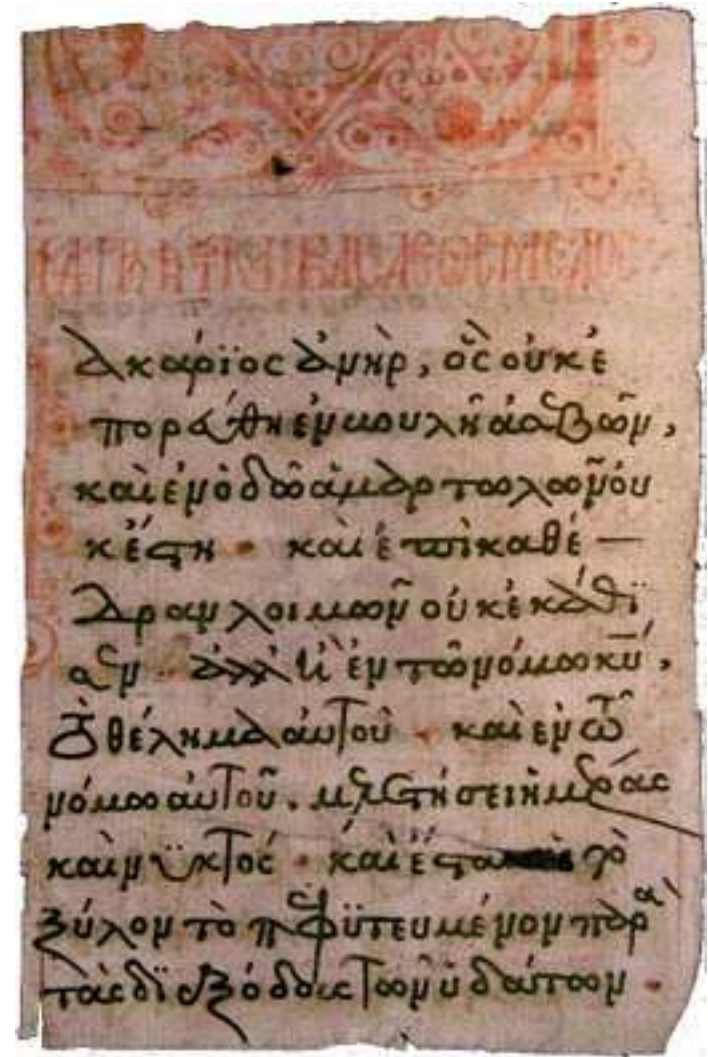 ακάρϊος ἀνὴρ, ὃς οὐκ ἐ
πορεύθη ἐν βουλῇ ἀσεβῶν,
καὶ ἐν ὁδῶ ἁμαρτωλῶν οὐ
κ ἔστη · καὶ ἐπὶ καθέ—
δραν λοιμῶν οὐκ ἐκάθϊ
σεν · ἀλλ' ἢ ἐν τῶ νόμω κ̅υ̅,
τὸ θέλημα αὐτοῦ · καὶ ἐν τῶ
νόμω αὐτοῦ. μελετήσει ἡμέρας
καὶ νϋκτός · καὶ ἔσται τὸ
ξύλον τὸ πεφϋτευμένον παρὰ
τὰς δϊεξόδους τῶν ὑδάτων ·